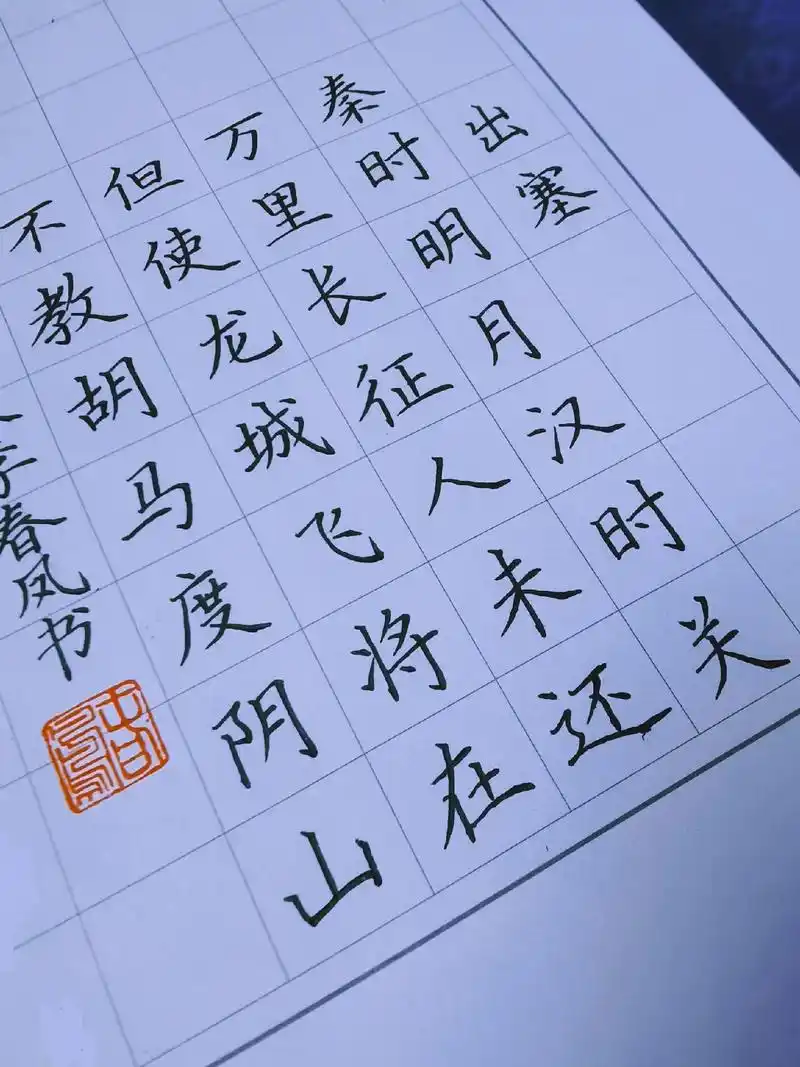 出塞
秦时明月汉时关
万里长征人未还
但使龙城飞将在
不教胡马度阴山
春风书